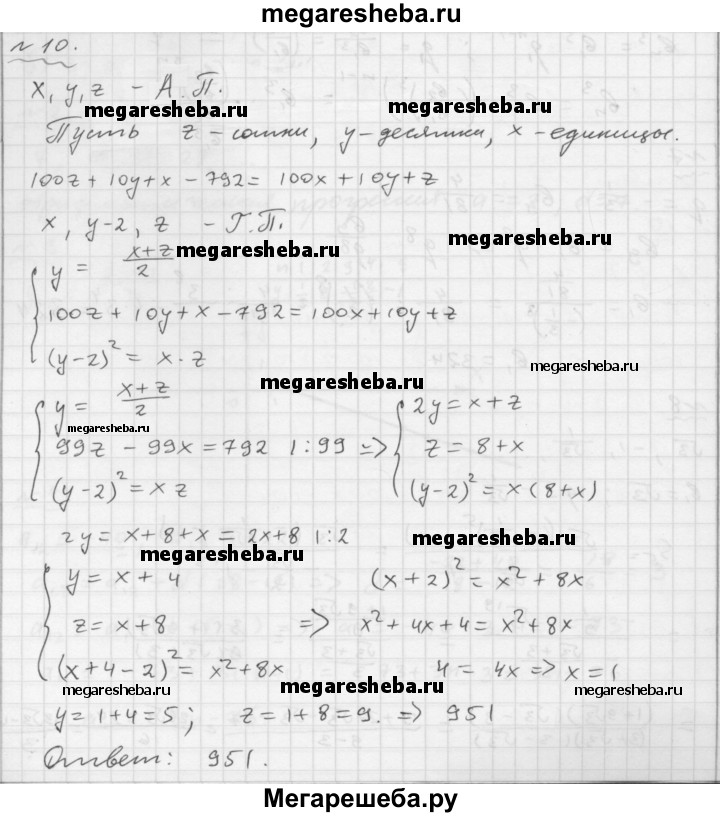 megaresheba.ru
№ 10.
x, y, z – А.П.
megaresheba.ru megaresheba.ru
Пусть z – сотни, y – десятки, x – единицы.
100z + 10y + x – 792 = 100x + 10y + z
x, y-2, z – Г.П.
y = (x+z)/2 megaresheba.ru megaresheba.ru
100z + 10y + x – 792 = 100x + 10y + z
(y-2)² = x · z
megaresheba.ru megaresheba.ru
y = (x+z)/2 2y = x + z
megaresheba.ru
99z – 99x = 792 | : 99 => z = 8 + x
(y-2)² = x z (y-2)² = x (8+x)
2y = x + 8 + x = 2x + 8 | : 2
megaresheba.ru megaresheba.ru
y = x + 4 (x+2)² = x² + 8x
z = x + 8 => x² + 4x + 4 = x² + 8x
(x+4-2)² = x² + 8x 4 = 4x => x = 1
megaresheba.ru megaresheba.ru megaresheba.ru
y = 1 + 4 = 5; z = 1 + 8 = 9. => 951
Ответ: 951.
Мегарешеба.ру